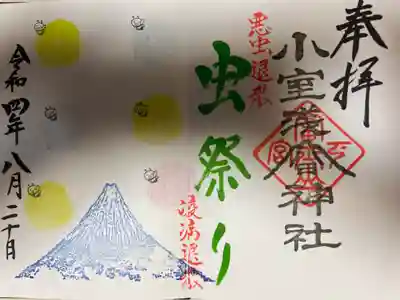 奉拝
小室神社
悪虫退散
虫祭り
疫病退散
令和四年八月二十日